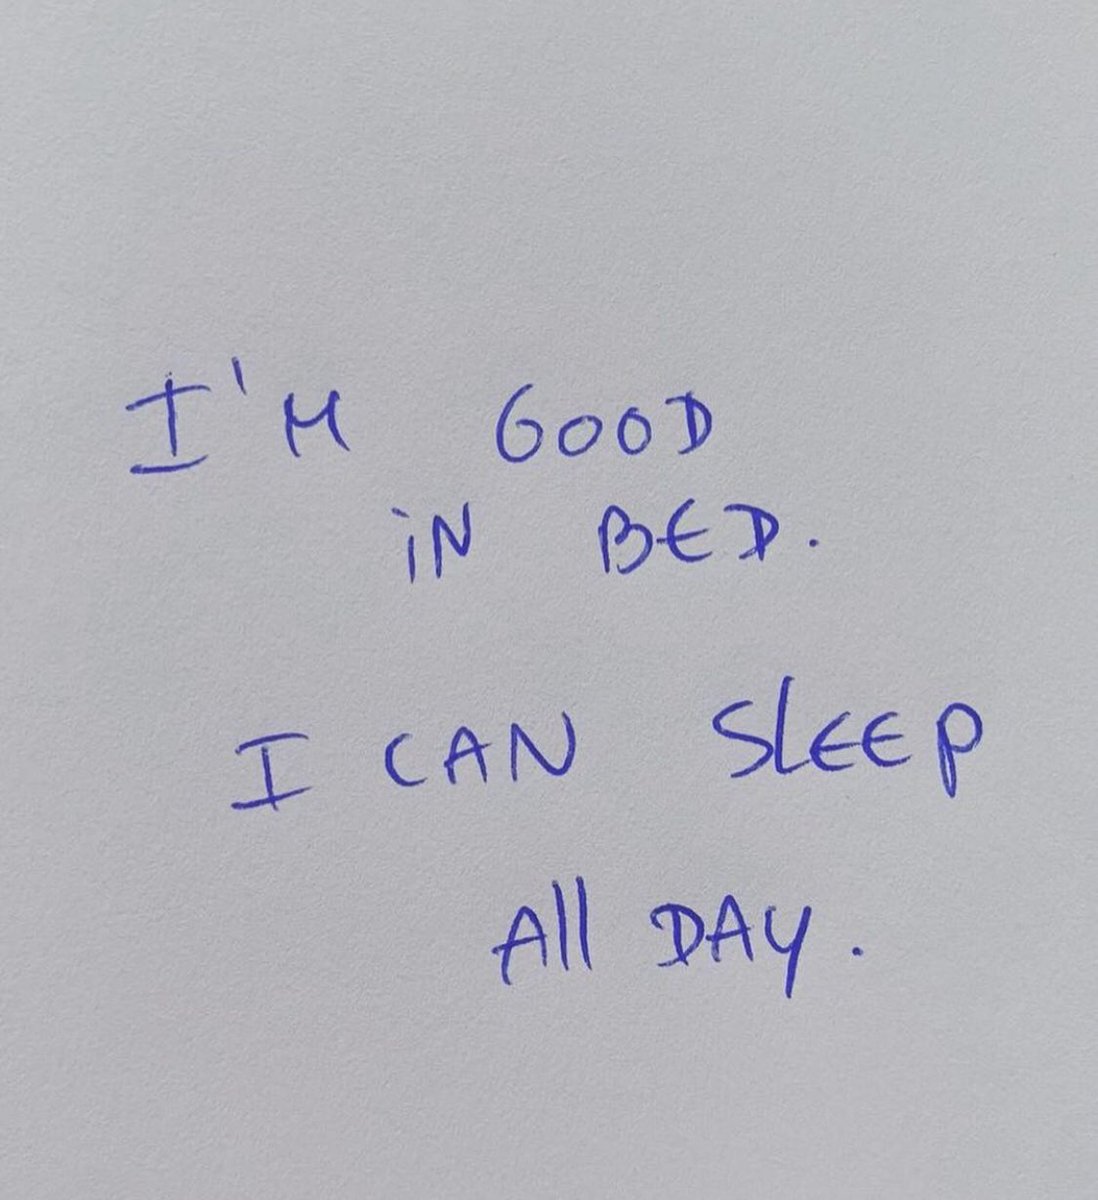 I'M GOOD
iN BED.
I CAN SlEEP
All DAY.